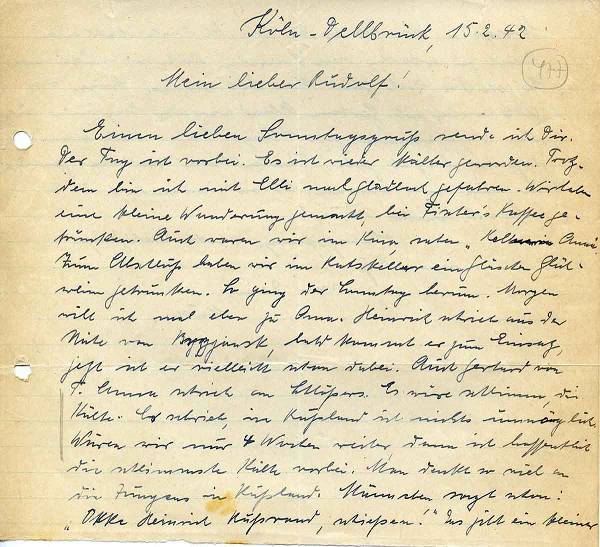 Köln-Dellbrück, 15.2.42
477
Mein lieber Rudolf!
Einen lieben Sonntagsgruß sende ich Dir.
Der Tag ist vorbei. Es ist wieder kälter geworden. Trotz-
dem bin ich mit Elli nach Gladbach gefahren. Wir haben
eine kleine Wanderung gemacht, bei Kaffee ge-
trunken. Auch waren wir im Kino, sahen „ Anna".
Zum Abschluß haben wir im Ratskeller ein Gläschen Glüh-
wein getrunken. So ging der Sonntag herum. Morgen
will ich mal eben zu Anna. Heinrich schrieb aus der
Nähe von , bald kommt er zum Einsatz,
jetzt ist er vielleicht schon dabei. Auch Gerhard von
T. Anna schrieb an Schlößers. Es wäre schlimm, die
Kälte. Er schrieb, in Rußland ist nichts unmöglich.
Wären wir nur 4 Wochen weiter, dann ist hoffentlich
die schlimmste Kälte vorbei. Man denkt so viel an
die Jungens in Rußland. Männchen sagt schon:
„ Heinrich Rußland, schießen!" Das gibt ein kleiner